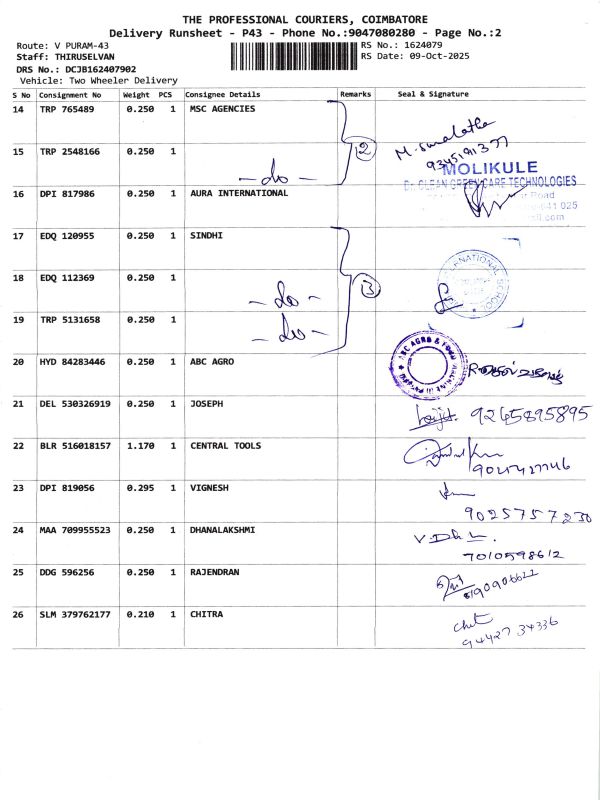 THE PROFESSIONAL COURIERS, COIMBATORE
Delivery Runsheet - P43 - Phone No.:9047080280 - Page No.:2
Route: V PURAM-43 RS No.: 1624079
Staff: THIRUSELVAN RS Date: 09-Oct-2025
DRS No.: DCJB162407902
Vehicle: Two Wheeler Delivery
S No Consignment No Weight PCS Consignee Details Remarks Seal & Signature
14 TRP 765489 0.250 1 MSC AGENCIES
15 TRP 2548166 0.250 1 -do- 2 9345191377
MOLIKULE
CLEAN GREENCARE TECHNOLOGIES
16 DPI 817986 0.250 1 AURA INTERNATIONAL
Road
641 025
17 EDQ 120955 0.250 1 SINDHI
18 EDQ 112369 0.250 1 -do- 3
19 TRP 5131658 0.250 1 -do-
20 HYD 84283446 0.250 1 ABC AGRO ABC AGRO & FOOD
21 DEL 530326919 0.250 1 JOSEPH 9245895895
22 BLR 516018157 1.170 1 CENTRAL TOOLS
23 DPI 819056 0.295 1 VIGNESH
9025757230
24 MAA 709955523 0.250 1 DHANALAKSHMI
7010598612
25 DDG 596256 0.250 1 RAJENDRAN
26 SLM 379762177 0.210 1 CHITRA
94427 34336